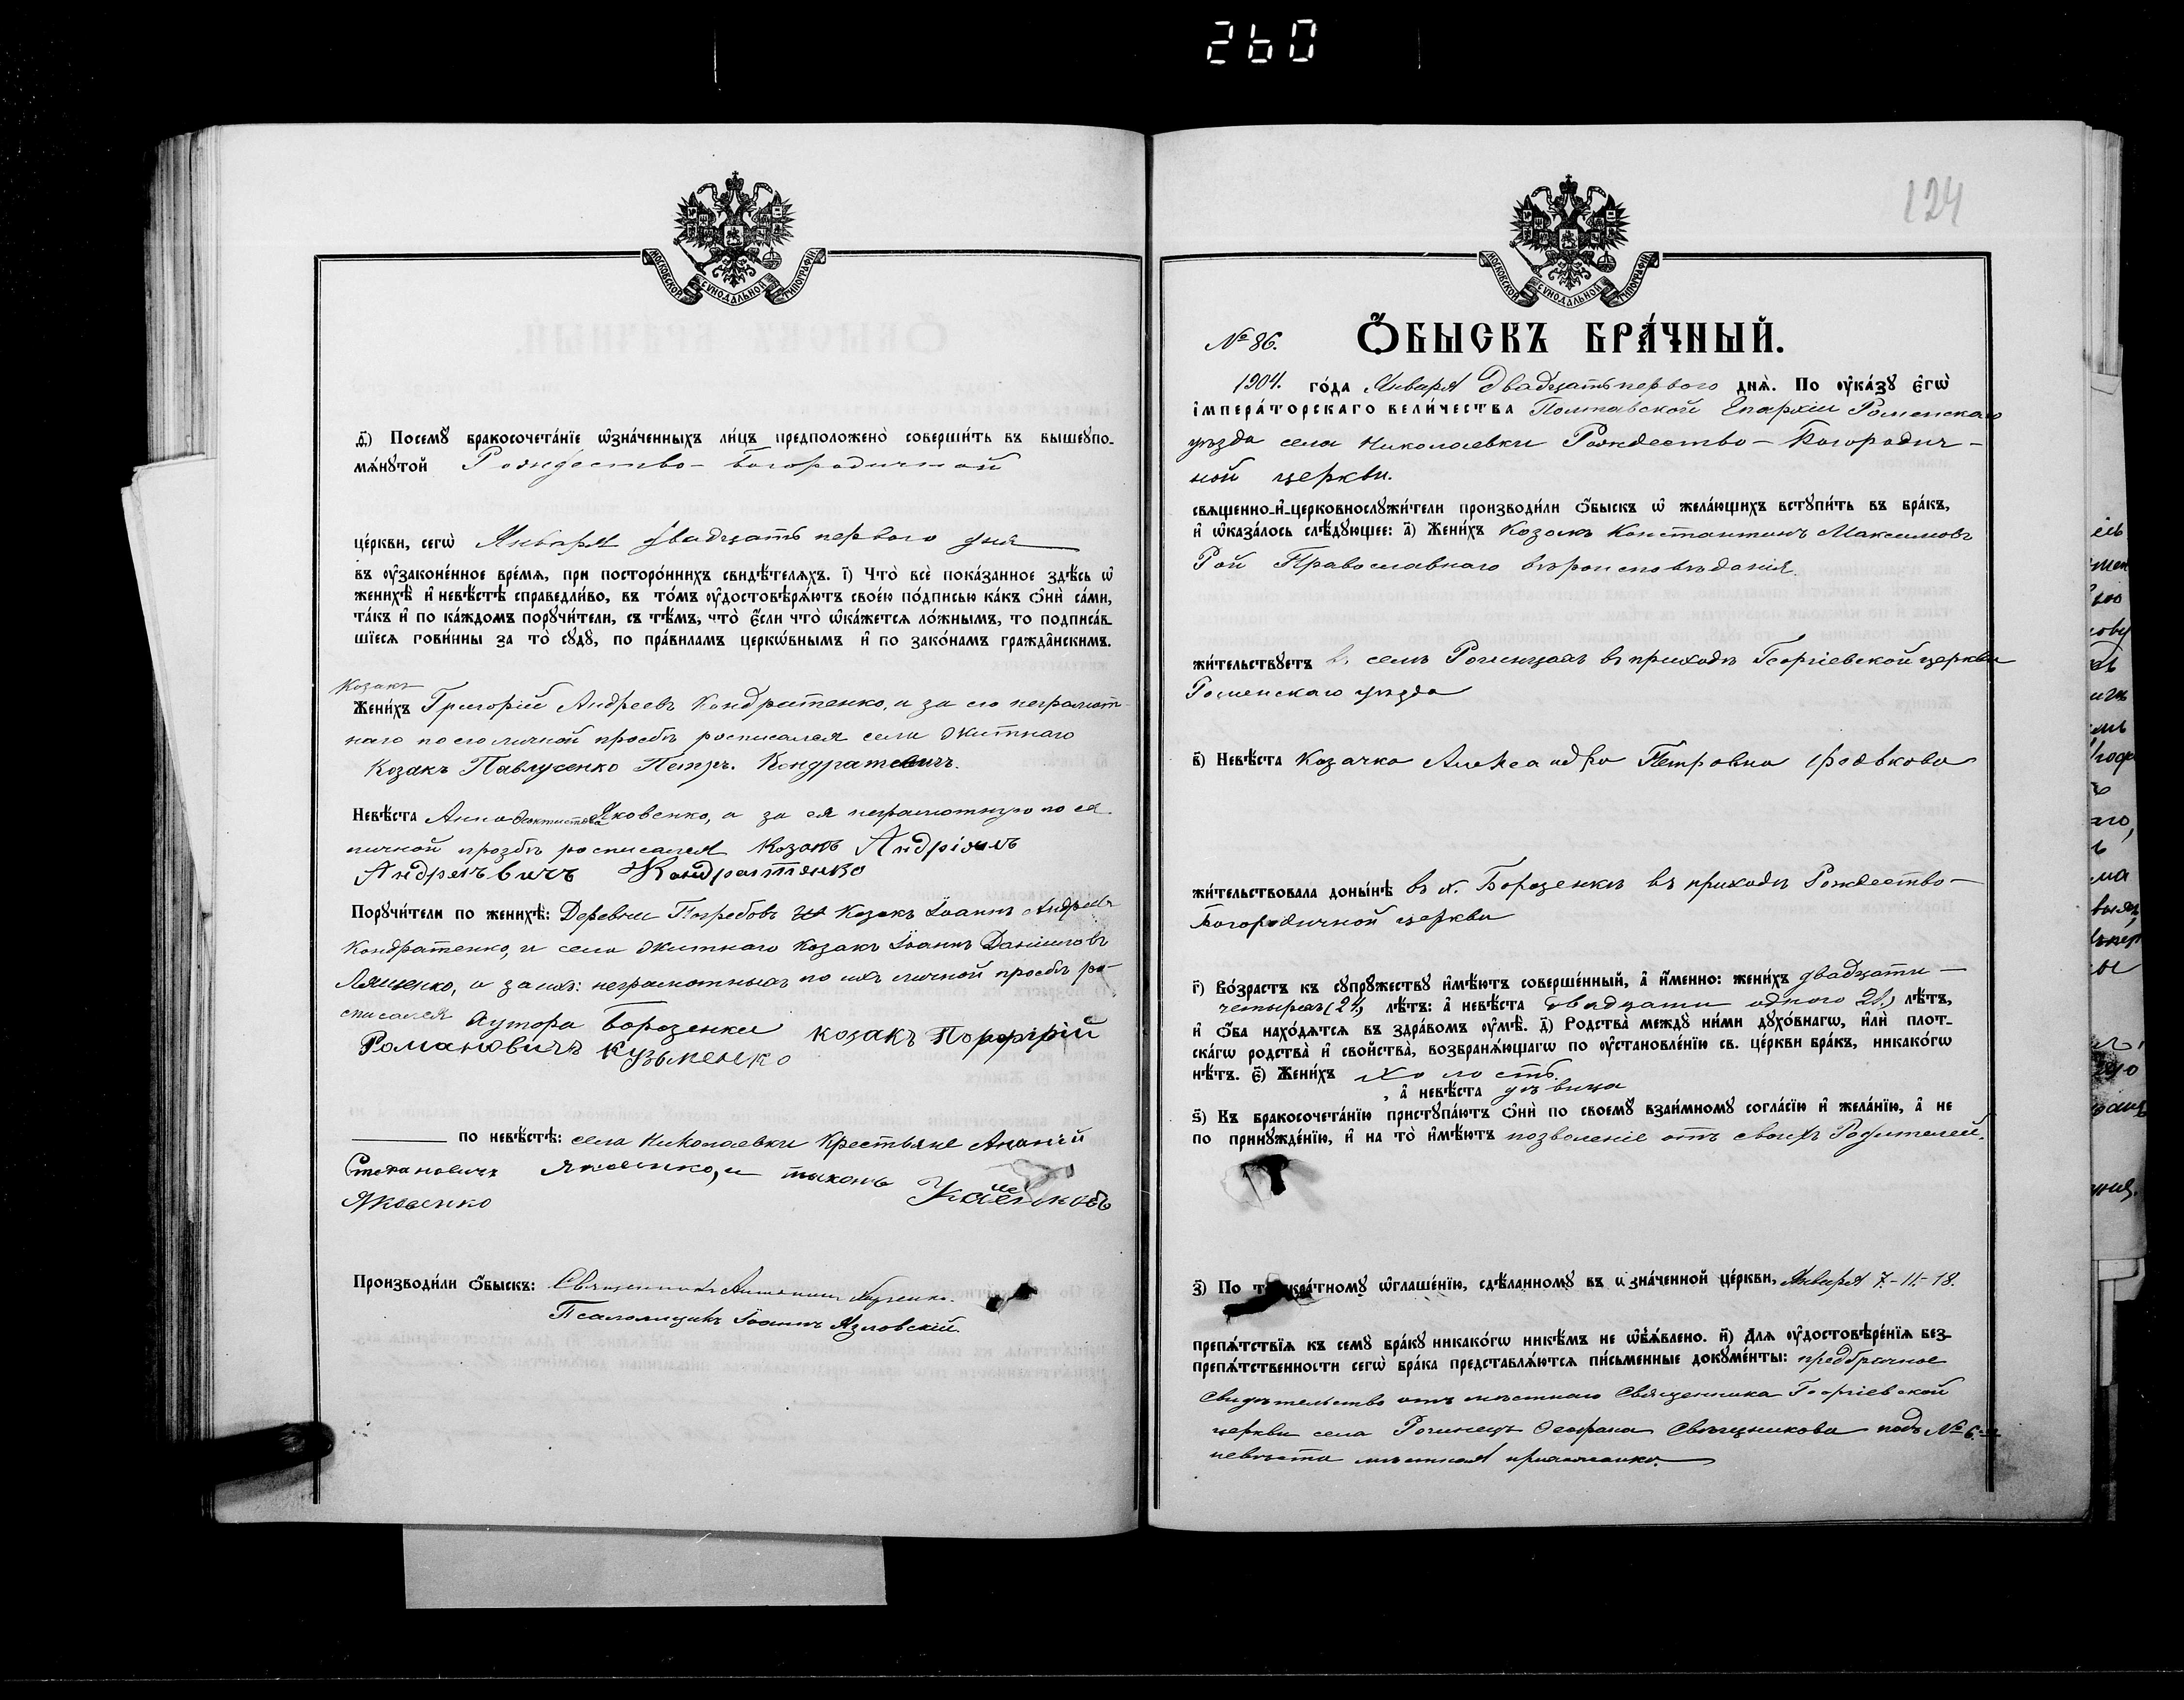 260
МОСКОВСКОЙ СѴНОДАЛЬНОЙ ТИПОГРАФІИ
ѳ҃) Посемꙋ бракосочета́нїе ѡ҆зна́ченныхъ ли́цъ предположено̀ соверши́ть въ вышеꙋпо-
мѧ́нꙋтой Рождество-Богородичной
це́ркви, сегѡ̀ Января двадцать первого дня
въ ᲂу҆законе́нное вре́мѧ, при посторо́ннихъ свидѣ́телѧхъ. і҃) Что̀ всѐ пока́занное здѣ́сь ѡ҆
женихѣ̀ и҆ невѣ́стѣ справедли́во, въ то́мъ ᲂу҆достовѣрѧ́ютъ свое́ю по́дписью ка́къ ѻ҆нѝ са́ми,
та́къ и҆ по ка́ждомъ порꙋчи́тели, съ тѣ́мъ, что̀ є҆́сли что̀ ѡ҆ка́жетсѧ ло́жнымъ, то подписа́в-
шїесѧ пови́нны за то̀ сꙋдꙋ̀, по пра́виламъ церкѡ́внымъ и҆ по зако́намъ гражда̂нскимъ.
Козакъ
Жени́хъ Григорій Андреевъ Кондратенко, а за его неграмот-
наго по его личной просьбѣ росписался села Житнаго
Козакъ Павлусенко Петръ Кондратевичъ.
Невѣ́ста Анна Феоктистова Яковенко, а за ея неграмотную по ея
личной прозбѣ росписался Козакъ Андріанъ
Андреевичъ Кондратенко
Порꙋчи́тели по женихѣ̀: Деревни Погребовъ Козакъ Іоаннъ Андреевъ
Кондратенко, и села Житнаго Козакъ Іоаннъ Даніиловъ
Лященко, а за ихъ неграмотныхъ по ихъ личной просьбѣ ро-
списался Хутора Борозенки козакъ Порфирій
Романовичъ Кузьменко
по невѣ́стѣ: села Николаевки Крестьяне Ананій
Степановичъ Яковенко, и Тихонъ
Яковенко
Производи́ли ѻ҆́быскъ: Священникъ
Псаломщикъ Іоаннъ Язловскій.
124
МОСКОВСКОЙ СѴНОДАЛЬНОЙ ТИПОГРАФІИ
№ 86. Ѻ҆́БЫСКЪ БРА́ЧНЫЙ.
1904. го́да Января Двадцать первого днѧ̀. По ᲂу҆ка́зꙋ є҆гѡ̀
і҆мпера́торскагѡ вели́чества Полтавской Епархіи Роменскаго
уѣзда села Николаевки Рождество-Богородич-
ной церкви.
свѧщенно-и҆-церковнослꙋжи́тели производи́ли ѻ҆́быскъ ѡ҆ жела́ющихъ встꙋпи́ть въ бра́къ,
и҆ ѡ҆каза́лось слѣ́дꙋющее: а҃) Жени́хъ Козакъ Константинъ Максимовъ
Рой Православнаго вѣроисповѣданія.
жи́тельствꙋетъ въ селѣ Роменцахъ въ приходѣ Георгіевской церкви
Роменскаго уѣзда
в҃) Невѣ́ста Козачка Александра Петровна
жи́тельствовала доны́нѣ въ х. Борозенкѣ въ приходѣ Рождество-
Богородичной церкви
г҃) Во́зрастъ къ сꙋпрꙋ́жествꙋ и҆мѣ́ютъ соверше́нный, а҆ и҆́менно: жени́хъ двадцати-
четырехъ (24) лѣ́тъ: а҆ невѣ́ста двадцати одного 21) лѣ́тъ,
и҆ ѻ҆́ба нахо́дѧтсѧ въ здра́вомъ ᲂу҆мѣ̀. д҃) Родства̀ междꙋ̀ ни́ми дꙋхо́внагѡ, и҆лѝ плот-
ска́гѡ родства̀ и҆ свойства̀, возбранѧ́ющагѡ по ᲂу҆становле́нїю св. це́ркви бра́къ, никако́гѡ
нѣ́тъ. є҃) Жени́хъ Холостъ
, а҆ невѣ́ста дѣвица
ѕ҃) Къ бракосочета́нїю пристꙋпа́ютъ ѻ҆нѝ по своемꙋ̀ взаи́мномꙋ согла́сїю и҆ жела́нїю, а҆ не
по принꙋжде́нїю, и҆ на то̀ и҆мѣ́ютъ позволеніе отъ своихъ Родителей.
з҃) По троекра́тномꙋ ѡ҆глаше́нїю, сдѣ́ланномꙋ въ ѡ҆зна́ченной це́ркви, Января 7-11-18.
препѧ́тствїѧ къ семꙋ̀ бра́кꙋ никако́гѡ никѣ́мъ не ѡ҆б̾ѧ́влено. и҃) Длѧ ᲂу҆достовѣре́нїѧ без-
препѧ́тственности сегѡ̀ бра́ка представлѧ́ютсѧ пи́сьменные докꙋме́нты: предбрачное
свидѣтельство отъ мѣстнаго Священника Георгіевской
церкви села Роменецъ Феофана Свѣчникова подъ № 6
невѣста мѣстная прихожанка.